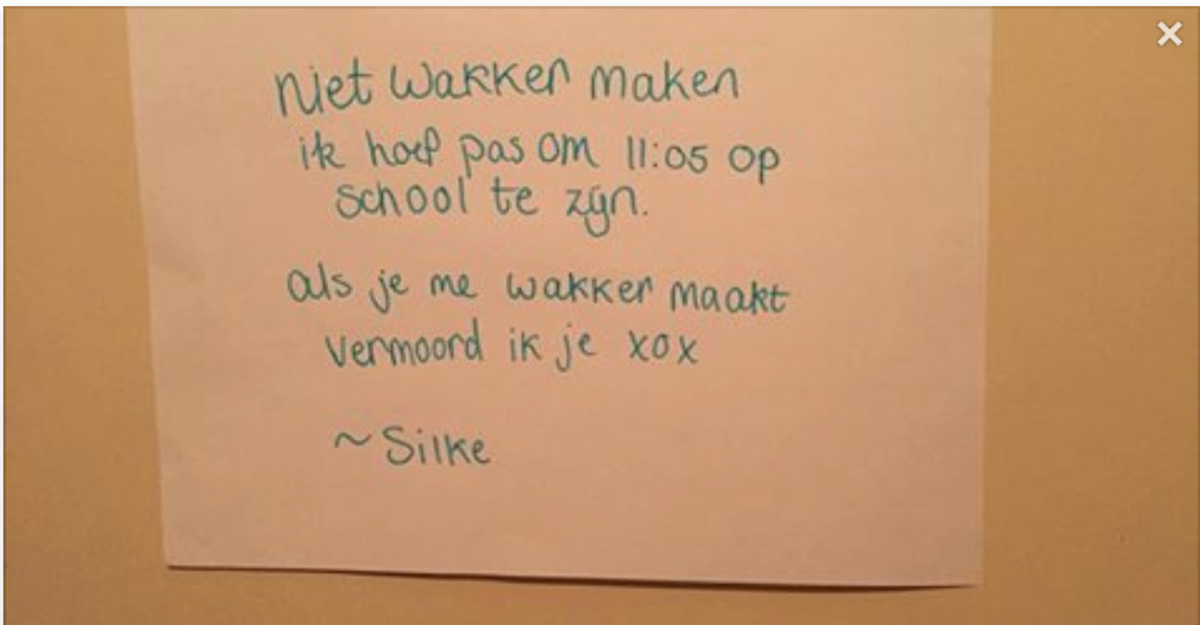 Niet wakker maken
ik hoef pas om 11:05 op
school te zijn.
als je me wakker maakt
vermoord ik je xox
~Silke